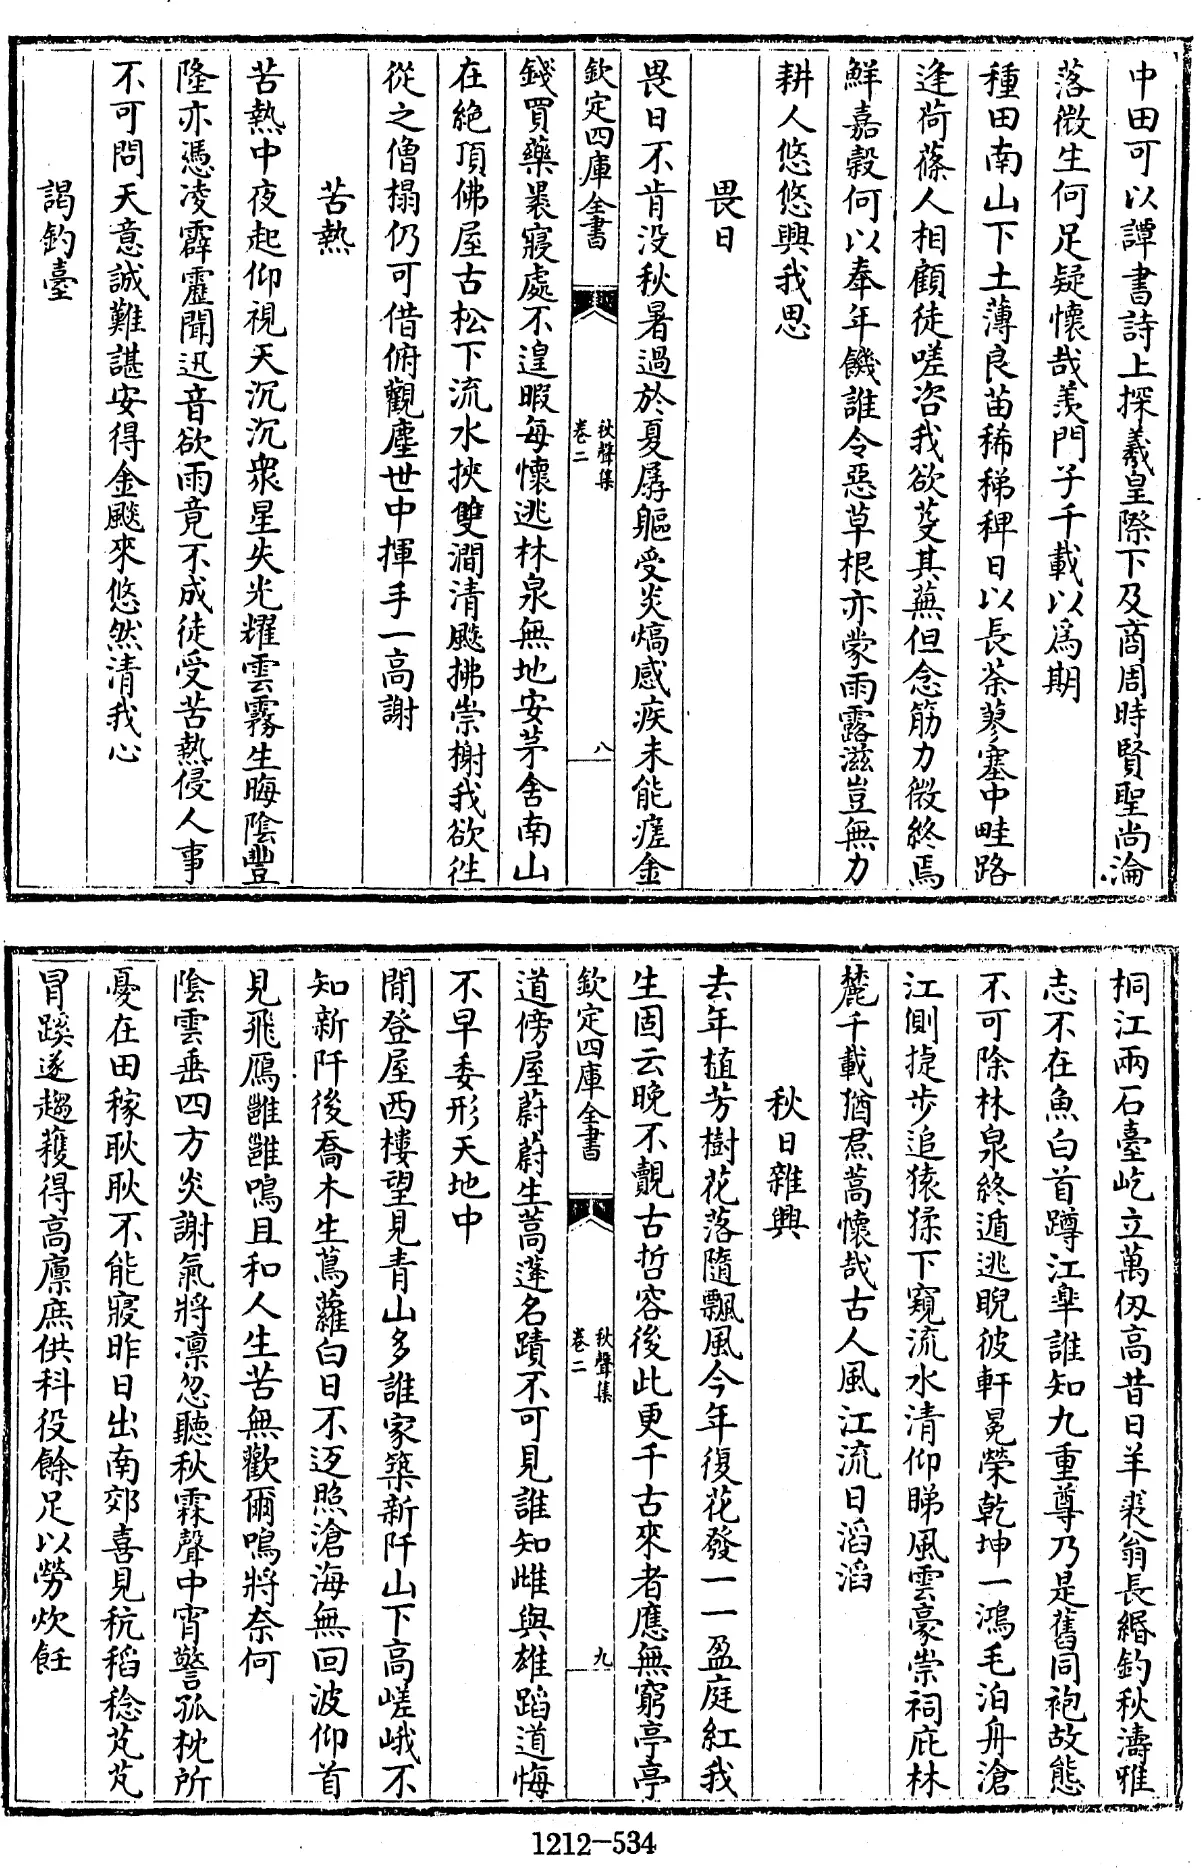 中田可以譚書詩上探羲皇際下及商周時賢聖尚淪
落微生何足疑懷哉羨門子千載以爲期
種田南山下土薄良苗稀稊稗日以長荼蓼塞中畦路
逢荷蓧人相顧徒嗟咨我欲芟其蕪但念筋力微終焉
鮮嘉穀何以奉年饑誰令惡草根亦蒙雨露滋豈無力
耕人悠悠興我思
畏日
畏日不肯没秋暑過於夏孱軀受炎熇感疾未能瘥金
欽定四庫全書
秋聲集
卷二
八
錢買藥裹寢處不遑暇每懷逃林泉無地安茅舍南山
在絶頂佛屋古松下流水挾雙澗清飈拂崇榭我欲徃
從之僧榻仍可借俯觀塵世中揮手一高謝
苦熱
苦熱中夜起仰視天沉沉衆星失光耀雲霧生晦陰豐
隆亦憑凌霹靂聞迅音欲雨竟不成徒受苦熱侵人事
不可問天意誠難諶安得金飈來悠然清我心
謁釣臺
桐江兩石臺屹立萬仭高昔日羊裘翁長緡釣秋濤雅
志不在魚白首蹲江臯誰知九重尊乃是舊同袍故態
不可除林泉終遁逃睨彼軒冕榮乾坤一鴻毛泊舟滄
江側捷步追猿猱下窺流水清仰睇風雲豪崇祠庇林
麓千載猶焄蒿懷哉古人風江流日滔滔
秋日雜興
去年植芳樹花落隨飄風今年復花發一一盈庭紅我
生固云晚不覿古哲容後此更千古來者應無窮亭亭
欽定四庫全書
秋聲集
卷二
九
道傍屋蔚蔚生蒿蓬名蹟不可見誰知雌與雄蹈道悔
不早委形天地中
閒登屋西樓望見青山多誰家築新阡山下高嵯峨不
知新阡後喬木生蔦蘿白日不迈照滄海無回波仰首
見飛鴈雝雝鳴且和人生苦無歡爾鳴將奈何
陰雲垂四方炎謝氣將凛忽聽秋霖聲中宵警孤枕所
憂在田稼耿耿不能寢昨日出南郊喜見秔稻稔芃芃
冒蹊遂趨穫得高廪庶供科役餘足以勞炊飪
1212-534